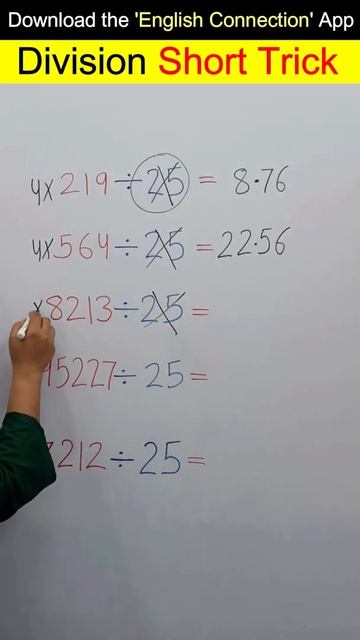 Download the 'English Connection' App
Division Short Trick
4x219÷25 = 8.76
4x564÷25 =22.56
x8213÷25 =
5227÷25=
212÷25=